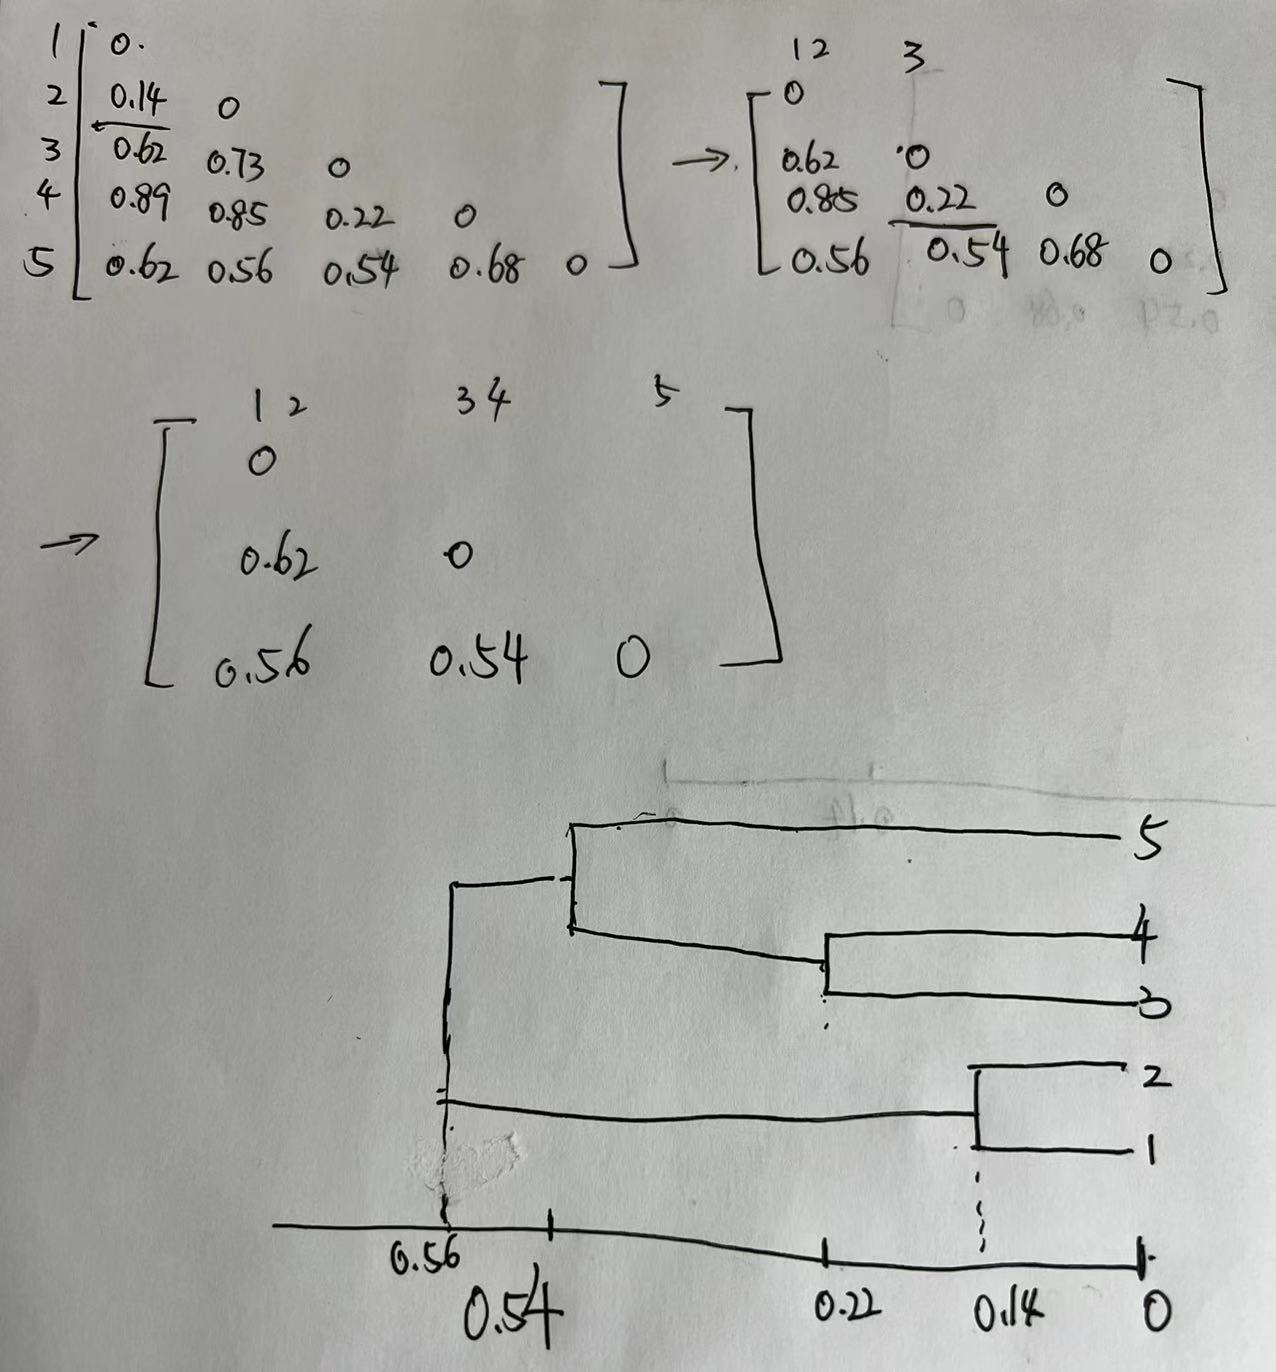 1 0.
2 0.14 0
3 0.62 0.73 0
4 0.89 0.85 0.22 0
5 0.62 0.56 0.54 0.68 0
→
12 3
0
0.62 0
0.85 0.22 0
0.56 0.54 0.68 0
→
12 34 5
0
0.62 0
0.56 0.54 0
5
4
3
2
1
0.56 0.54 0.22 0.14 0